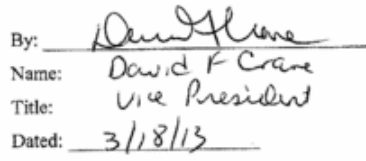 By: David F Crane
Name: David F Crane
Title: Vice President
Dated: 3/18/13